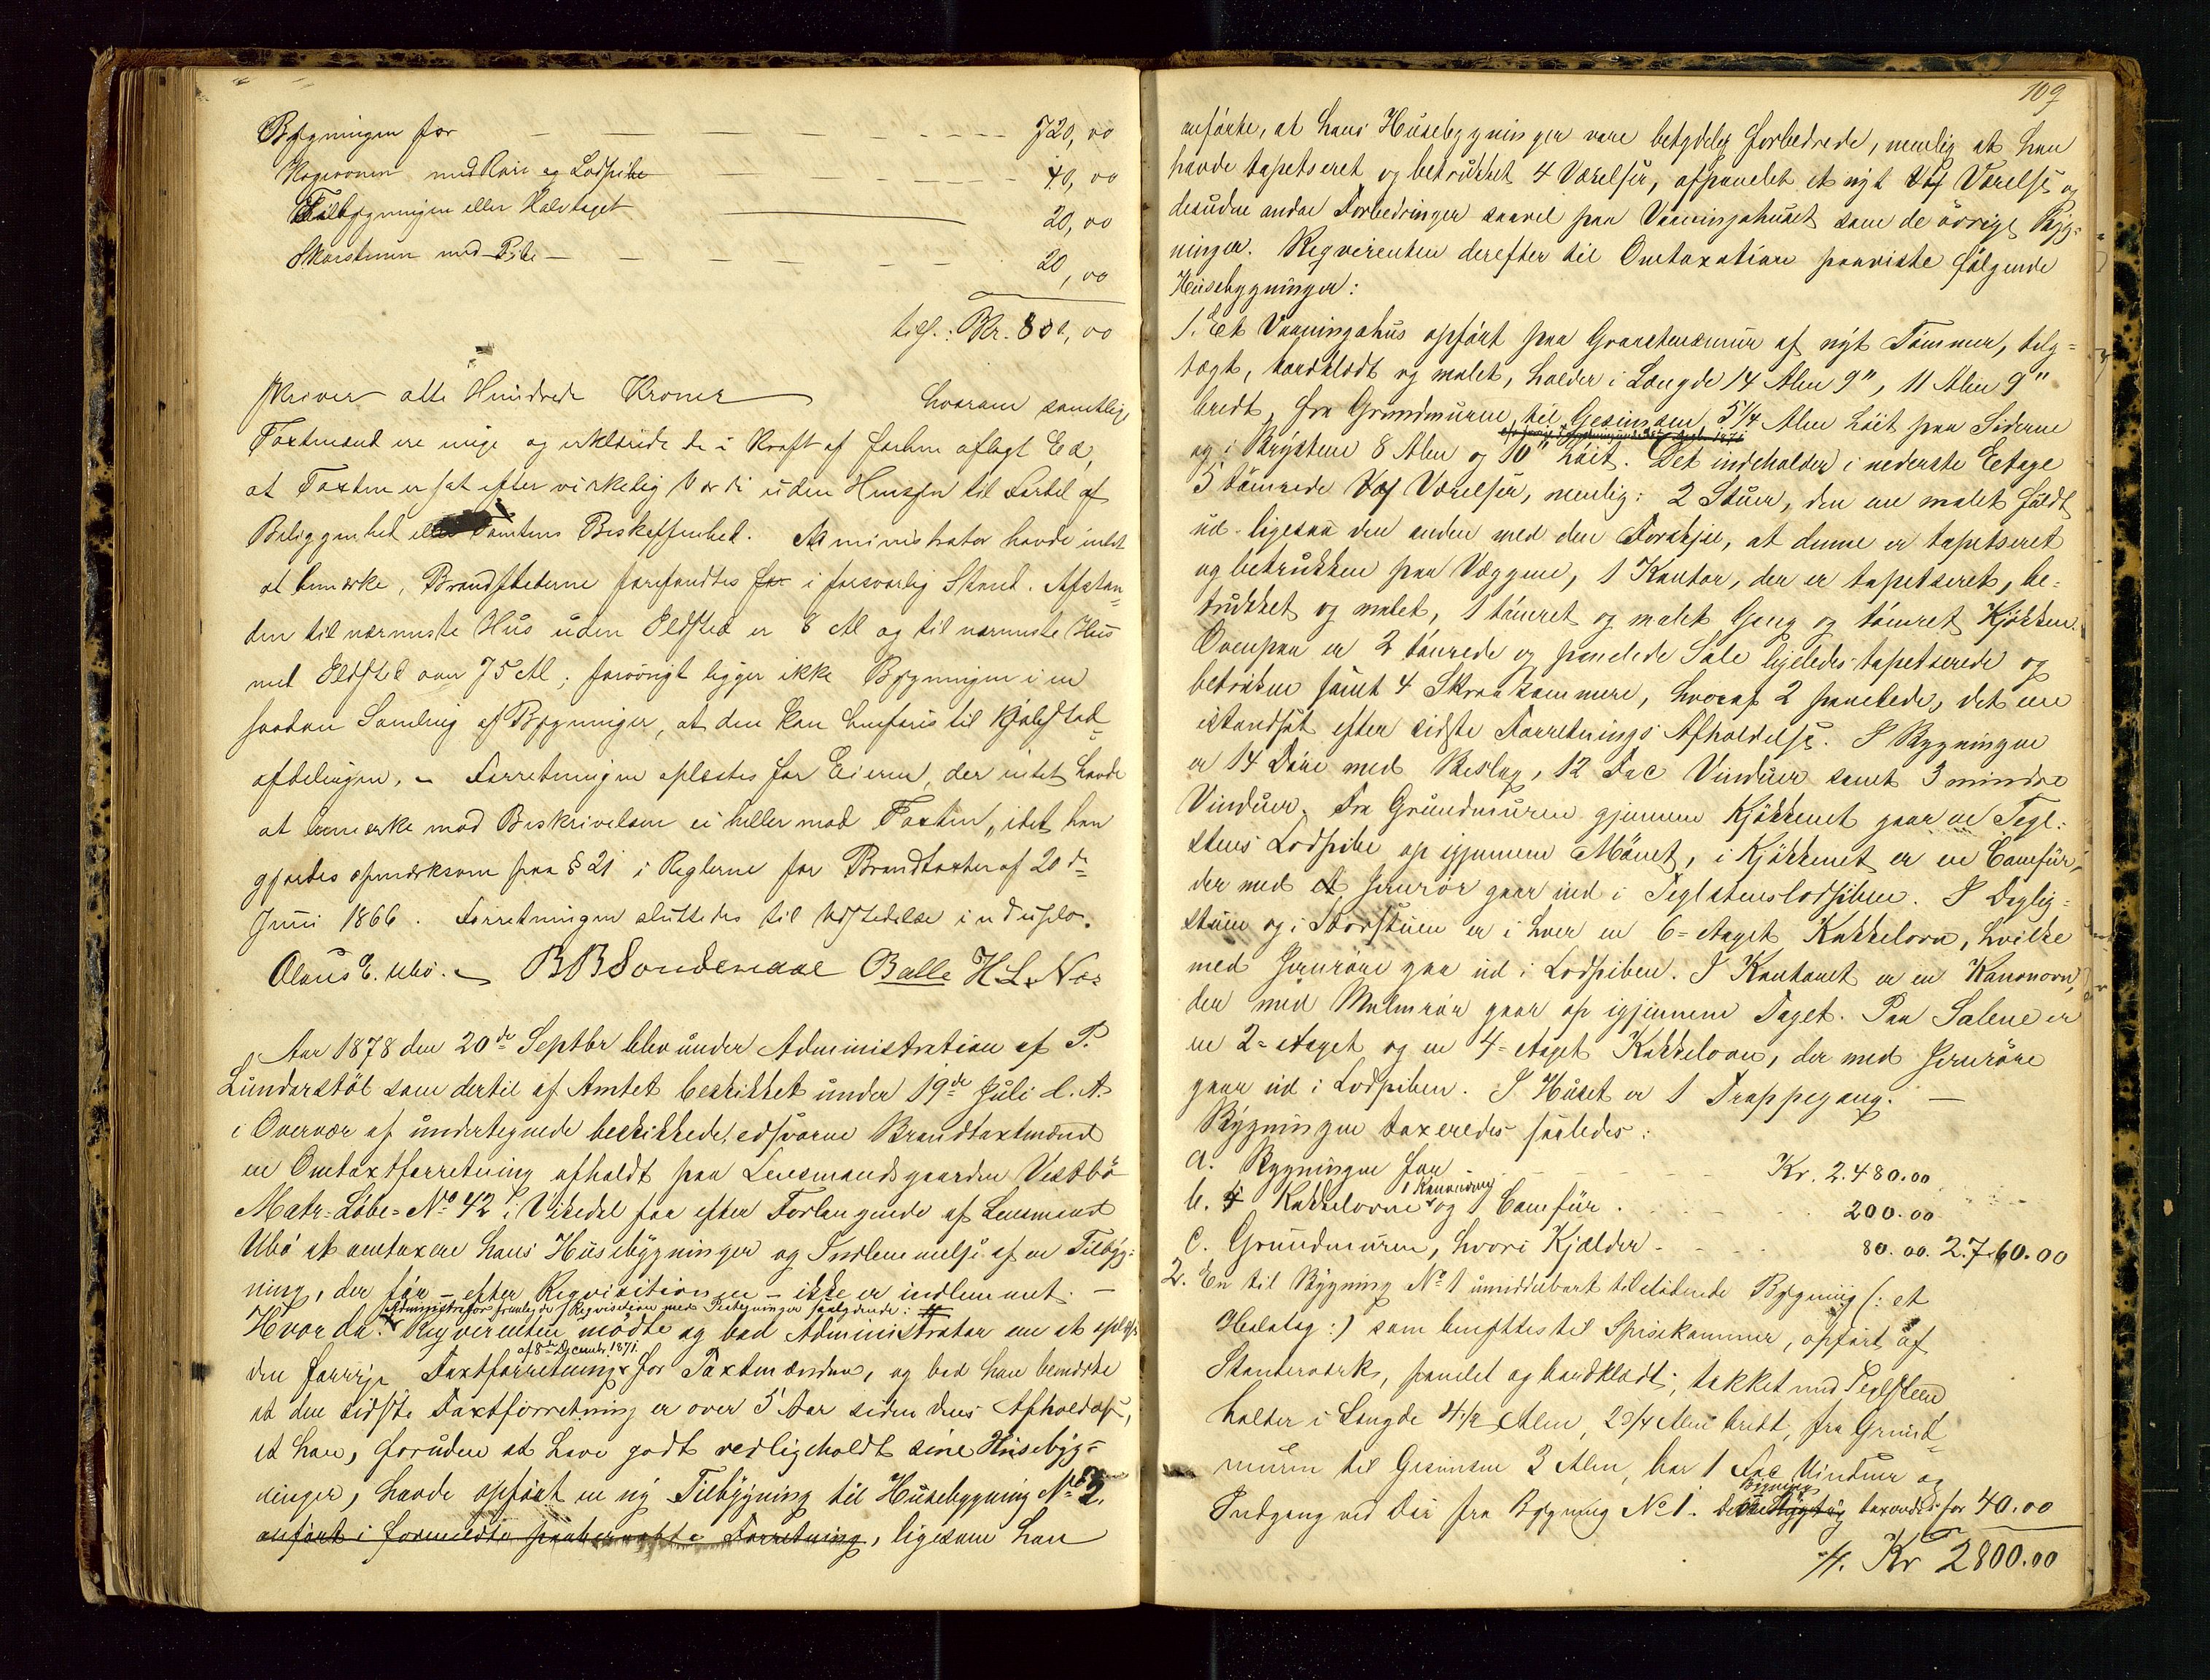 Bygningen for — — — — 720,00
Kogeovnen med Rør og Lodpibe — — — 40,00
Tilbygningen eller Halvtaget — 20,00
Skorstenen med Pibe — — — — 20,00
tils.: Kr. 800,00
skriver otte Hundrede Kroner hvorom samtlige
Taxtmænd ere enige og erklærede de i Kraft af forhen aflagt Ed,
at Taxten er sat efter virkelig Værdi uden Hensyn til Fordel af
Beliggenhed eller Tomtens Beskaffenhed. Administrator havde intet
at bemærke, Brandstederne forefandtes for i forsvarlig Stand. Afstan-
den til nærmeste Hus uden Ildsted er 8 Al og til nærmeste Hus
med Ildsted over 75 Al; forøvrigt ligger ikke Bygningen i en
saadan Samling af Bygninger, at den kan henføres til Kjøbstad-
afdelingen. – Forretningen oplæstes for Eieren, der intet havde
at bemærke mod Beskrivelsen ei heller mod Taxten, idet han
gjordes opmærksom paa § 21 i Reglerne for Brandtaxter af 20de
Juni 1866. Forretningen sluttedes til Udstedelse in duplo.
Olaus E. Ubø. – B B Søndenaae Balle H. L. Næs
Aar 1878 den 20de Septbr blev under Administration af P.
Lunderstöl som dertil af Amtet beskikket under 19de Juli d. A.
i Overvær af undertegnede beskikkede, edsvorne Brandtaxtmænd
en Omtaxtforretning afholdt paa Lensmandsgaarden Vestbø
Matr=Löbe=No 42 i Vikedal for efter Forlangende af Lensmand
Ubø at omtaxere hans Husebygninger og Indlemmelse af en Tilbyg-
ning, der før – efter Reqvisitionen – ikke er indlemmet. –
Administrator fremlagde Reqvisition med Paategninger saalydende: #
Hvor da: Reqvirenten mödte og bad Administrator om at oplæse
af 8de Decembr 1871.
den forrige Taxtforretning for Taxtmændene, og bad han bemærke
at den sidste Taxtforretning er over 5 Aar siden dens Afholdelse,
at han, foruden at have godt vedligeholdt sine Husebyg-
ninger, havde opført en ny Tilbygning til Husebygning No 2.
anført i formeldte paaberaabte Forretning, ligesom han
109
anførte, at hans Husebygninger vare betydelig forbedrede, nemlig at han
havde tapetseret og betrukket 4 Værelser, afpanelet et nyt Værelse og
desuden andre Forbedringer saavel paa Vaaningshuset som de övrige Byg-
ninger. Reqvirenten derefter til Omtaxation paaviste følgende
Husebygninger:
1. Et Vaaningshus opført paa Graastensmur af nyt Tömmer, telg-
tægt, bordklædt og malet, holder i Længde 14 Alen 9", 11 Alen 9"
bredt, fra Grundmuren til Gesimsen 5 1/4 Alen höit paa Siderne
og i Brystene 8 Alen og 10" höit. Det indeholder i nederste Etage
5 tömrede Værelser, nemlig: 2 Stuer, den ene malet fuldt
ud – ligesaa den anden med den Forskjel, at denne er tapetseret
og betrukken paa Væggene, 1 Kontor, der er tapetseret, be-
trukket og malet, 1 tömret og malet Gang og tömret Kjökken.
Ovenpaa er 2 tömrede og panelede Sale ligeledes tapetserede og
betrukne samt 4 Skraakammere, hvoraf 2 panelede, det ene
istandsat efter sidste Forretnings Afholdelse. I Bygningen
er 14 Döre med Beslag, 12 Fac Vinduer samt 3 mindre
Vinduer. Fra Grundmuren gjennem Kjökkenet gaar en Tegl-
stens Lodpibe op igjennem Mönet, i Kjökkenet er en Comfür,
der med et Jernrör gaar ind i Teglstenslodpiben. I Daglig-
stuen og i Storstuen er i hver en 6=Etages Kakkelovn, hvilke
med Jernröre gaa ud i Lodpiben. I Kontoret er en Kanonovn,
der med Malmrör gaar op igjennem Taget. Paa Salene er
en 2=Etages og en 4=Etages Kakkelovn, der med Jernröre
gaar ud i Lodpiben. I Huset er 1 Trappegang. —
Bygningen taxeredes saaledes:
a. Bygningen for — — — — Kr. 2.480.00
1 Kanonovn
b. 4 Kakkelovne og 1 Comfür . . . . 200.00
c. Grundmuren, hvori Kjælder . . . 80.00. 2.760.00
2. En til Bygning No 1 umiddelbart tilstödende Bygning (: et
Halvtag :) som benyttes til Spisekammer, opført af
Stenderværk, panelet og bordklædt, tækket med Teglsteen
holder i Længde 4 1/2 Alen, 2 3/4 Alen bredt, fra Grund-
muren til Gesimsen 3 Alen, har 1 Fac Vinduer og
Bygning
Indgang ved Dör fra Bygning No 1. taxeredes for 40.00
Kr 2800.00